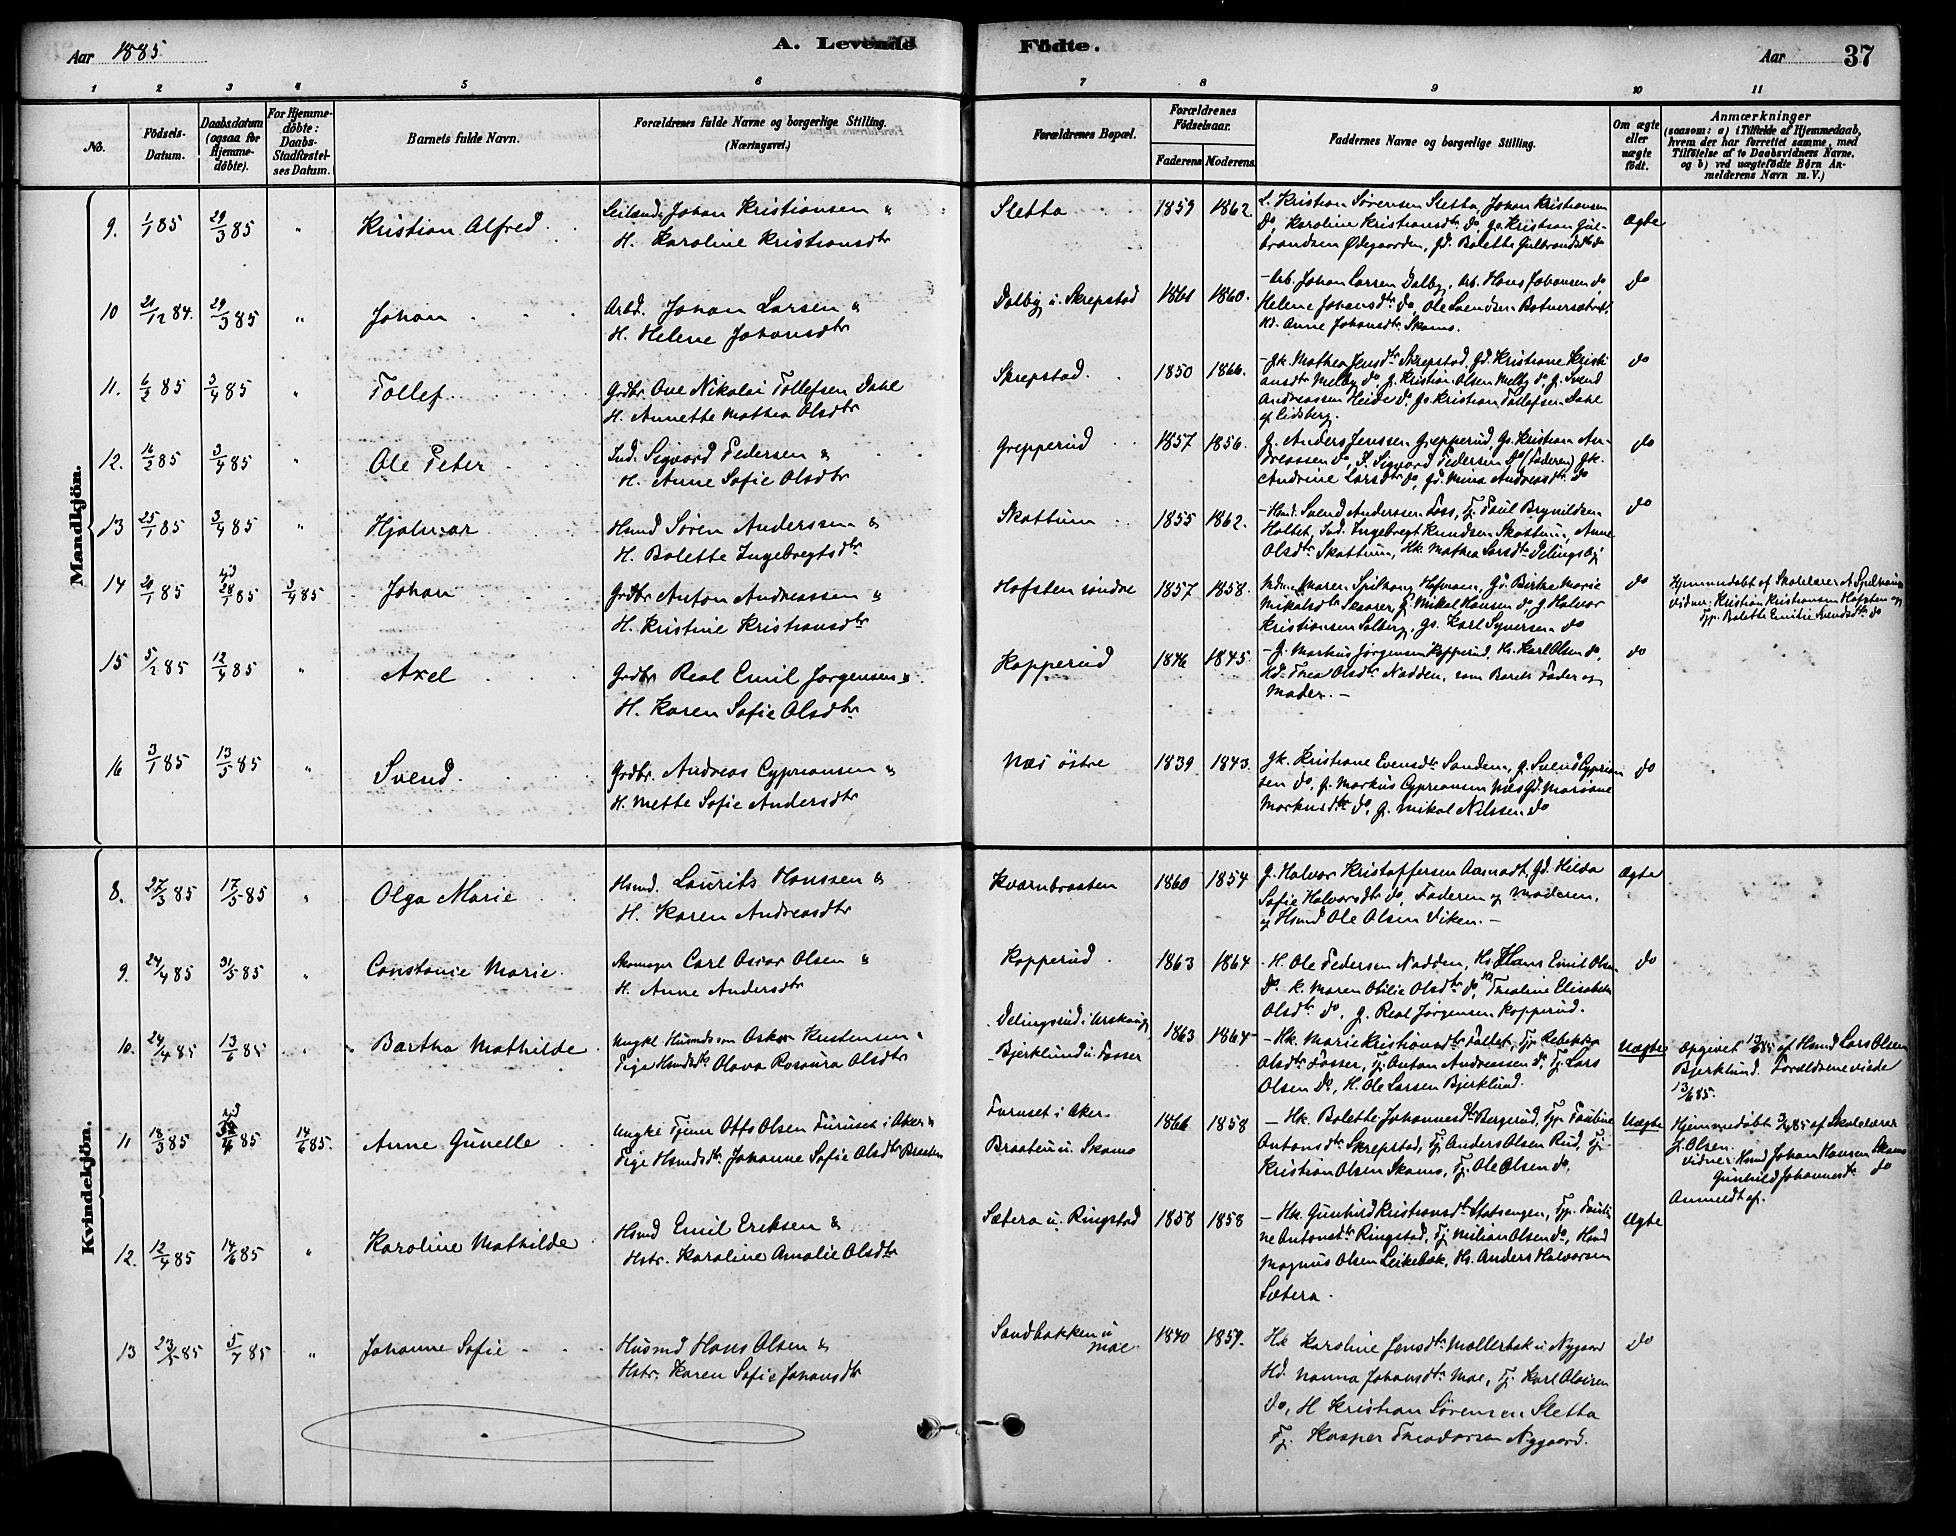 Aar 1885
A. Levende
Födte.
Aar
37
1 2 3 4 5 6 7 8 9 10 11
No.
Födsels-Datum.
Daabsdatum (ogsaa for Hjemmedöbte).
For Hjemmedöbte: Daabs-Stadfæstelses Datum.
Barnets fulde Navn.
Forældrenes fulde Navne og borgerlige Stilling. (Næringsvei.)
Forældrenes Bopæl.
Forældrenes Födselsaar.
Faderens Moderens
Faddernes Navne og borgerlige Stilling.
Om ægte eller uægte födt.
Anmærkninger
(saasom: a) i Tilfælde af Hjemmedaab, hvem der har forrettet samme, med Tilföielse af to Daabsvidners Navne, og b) ved uægtefödte Börn Anmelderens Navn m. V.)
Mandkjön.
9. 1/1 85 29/3 85 " Kristian Alfred
Johan Kristiansen &
H. Karoline Kristiansdtr
Sletta 1859 1862.
Kristian Sørensen Sletta, Johan Kristiansen
do, Karoline Kristiansdtr do, Gs. Kristian Gul-
brandsen Ødegaarden, Gd. Bolette Gulbrandsdtr do
Ægte
10 21/12 84. 29/3 85 " Johan
Arbd. Johan Larsen &
H. Helene Johansdtr
Dalby u. Skrepstad 1861 1860.
Arb. Johan Larsen Dalby, Arb. Hans Johansen do,
Helene Johansdtr do, Ole Svendsen
Anne Johansdtr Skams.
do
11. 6/2 85 3/4 85 " Tollef
Grdbr. Ove Nikolai Tollefsen Dahl
H. Annette Mathea Olsdtr
Skrepstad 1850 1866.
Gk. Mathea Jensdtr Skrepstad, Gd. Kristiane Kristi
ansdtr Melby do, G. Kristian Olsen Melby do, G. Svend
Andreassen Heide do, Gs. Kristian Tollefsen Dahl
af Eidsberg.
do
12. 16/2 85 3/4 85 " Ole Peter
Ind. Sigvard Pedersen &
H. Anne Sofie Olsdtr
Grepperud 1857 1856.
G. Anders Jenssen Grepperud, Gs. Kristian An-
dreassen do, I. Sigvard Pedersen do (Faderen) Gk.
Andrine Larsdtr do, Gd. Mina Andreasdtr do
do
13 25/1 85 3/4 85 " Hjalmar
Hsmd Søren Anderssen &
H. Bolette Ingebregtsdtr
Skattum 1855 1862.
Hsmd. Svend Anderssen Foss, Tj. Paul Brynildsen
Holtet, Ind. Ingebregt Knudsen Skattum, Anne
Olsdtr Skattum, Hk. Mathea Larsdtr Delingsby
do
14 20/1 85 28/1 85 3/4 85 Johan
Grdbr Anton Andreassen &
H. Kristine Kristiansdtr
Hofsten søndre 1857 1858.
Maren Spilhaug Hofmoen, Gd. Birthe Marie
Mikalsdtr Skaarer, G. Mikal Hansen do, G. Halvor
Kristiansen Solberg, Gs. Karl Syversen do
do
Hjemmedøbt af Skolelærer A. Spilhaug
Vidner: Kristian Kristiansen Hofsten og
Tjp. Bolette Emilie Svendsdtr do
15 5/2 85 12/4 85 " Axel
Grdbr. Real Emil Jørgensen &
H. Karen Sofie Olsdtr
Kopperud 1846 1845.
G. Markus Jørgensen Kopperud, Hs. Karl Olsen do,
Hd. Thea Olsdtr Nadden, som Barets Fader og
Moder. —
do
16 3/1 85 13/5 85 " Svend
Grdbr. Andreas Cypriansen &
H. Mette Sofie Andersdtr
Næs østre 1839 1843.
Gk. Kristiane Evensdtr Sanden, G. Svend Cyprian
sen do, G. Markus Cypriansen Næs, Gd. Mariane
Markusdtr do, G. Mikal Nilssen do
do
Kvindekjön.
8. 27/3 85 17/5 85 " Olga Marie
Hsmd. Laurits Hanssen &
H. Karen Andreasdtr
Kværnbraaten 1860 1854
G. Halvor Kristoffersen Aamodt, Gd. Hilda
Sofie Halvorsdtr do, Faderen og Moderen,
og Hsmd Ole Olsen Viken. —
Ægte
9. 24/4 85 31/5 85 " Constanse Marie
Skomager Carl Oscar Olsen &
H. Anne Andersdtr
Kopperud 1863 1864
H. Ole Pedersen Nadden, Hs. Hans Emil Olsen
do. K. Maren Otilie Olsdtr do, Thealine Elisabeth
Olsdtr do, G. Real Jørgensen Kopperud.
do
10. 24/4 85 13/6 85 " Bartha Mathilde
Ungkl Husmdssøn Oskar Kristensen &
Pige Hsmdsdtr Olava Rosaura Olsdtr
Delingsrud i Urskoug
Bjerklund u. Fosser 1863 1864
Hk. Marie Kristiansdtr Tollet, Tjp. Rebekka
Olsdtr Fosser, Tj. Anton Andreassen do, Tj. Lars
Olsen do, H. Ole Larsen Bjerklund.
Uægte
Opgivet 13/6 85 af Hsmd Lars Olsen
Bjerklund. Forældrene viede
13/6 85.
11 18/3 85 85 14/6 85. Anne Gunelle
Ungkl Tjener Otto Olsen Furuset i Aker &
Pige Hsmdsdtr. Johanne Sofie Olsdtr Braaten
Furuset i Aker
Braaten u. Skams 1866 1858
Hk. Bolette Johannesdtr Bergerud, Tjp. Pauline
Antonsdtr Skrepstad, Tj. Anders Olsen Rud, Tj.
Kristian Olsen Skams, Tj. Ole Olsen do,
Uægte
Hjemmedøbt af Skolelærer
J. Olsen.
Vidner: Hsmd Johan Hansen Skams
Gunhild Johannesdtr do
Anmeldt af.
12. 12/4 85 14/6 85 " Karoline Mathilde
Hsmd Emil Eriksen &
Hstr. Karoline Amalie Olsdtr
Sætera u. Ringstad 1858 1858
Hk. Gunhild Kristiansdtr Slotsengen, Tjp. Pauli
ne Antonsdtr Ringstad, Tj. Milian Olsen do, Hsmd
Magnus Olsen Leikebæk, Hs. Anders Halvorsen
Sætera.
Ægte
13 23/5 85 5/7 85 " Johanne Sofie
Husmd Hans Olsen &
Hstr. Karen Sofie Johansdtr
Sandbakken u
Moe 1840 1859.
Hk Karoline Jensdtr Møllerbæk u Nygaard
Hd. Nanna Johansdtr Moe, Tj. Karl Olaisen
do, H Kristian Sørensen Sletta
Tj. Kasper Theodorsen Nygaard.
do